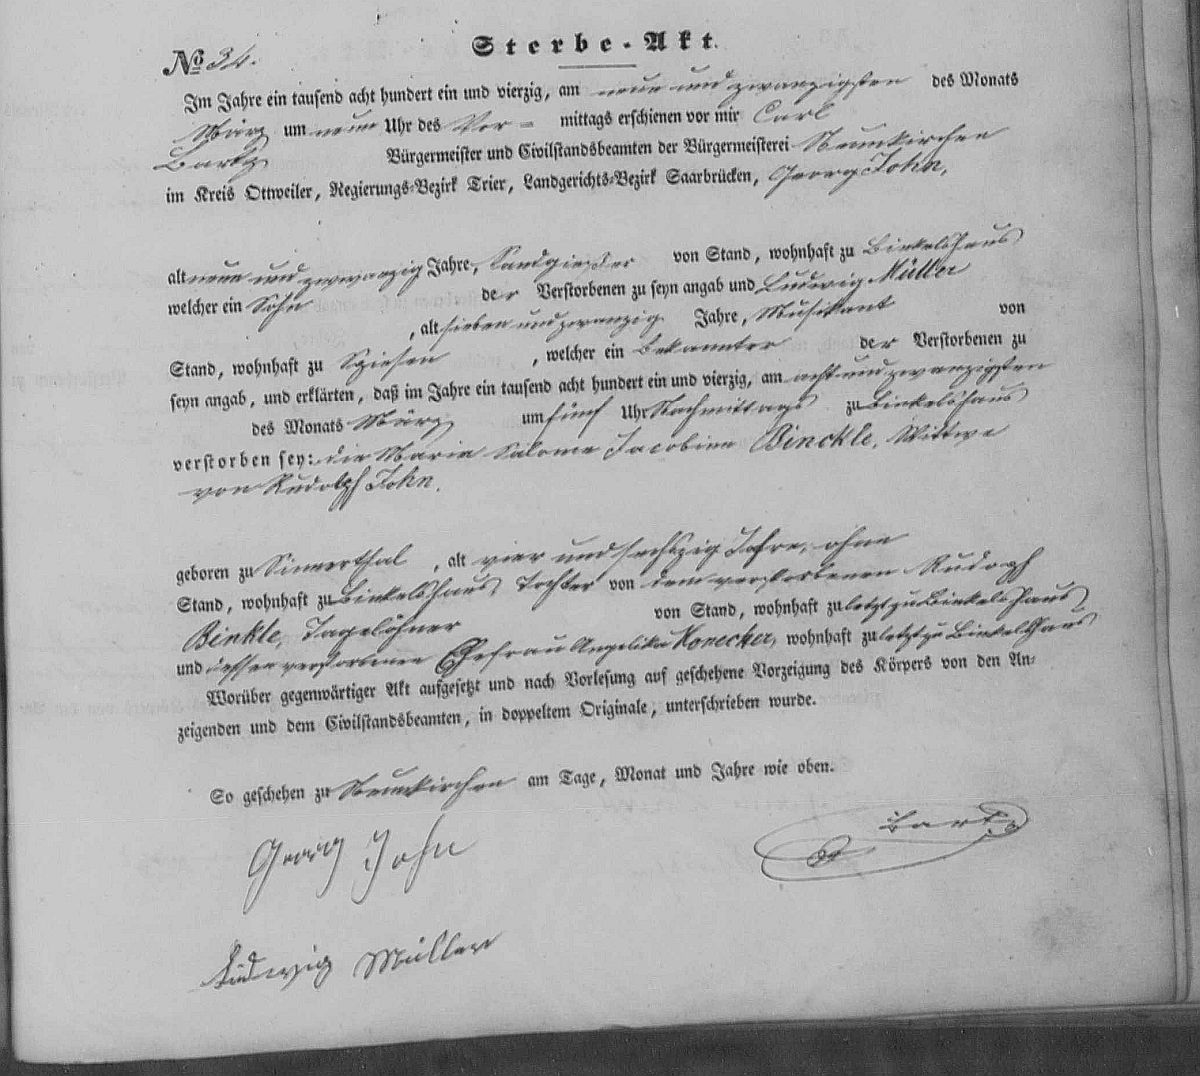 Sterbe-Akt.
No 34.
Im Jahre ein tausend acht hundert ein und vierzig, am neun und zwanzigsten des Monats
März um neun Uhr des Vor- mittags erschienen vor mir Carl
Bartz Bürgermeister und Civilstandsbeamten der Bürgermeisterei Neunkirchen
im Kreis Ottweiler, Regierungs-Bezirk Trier, Landgerichts-Bezirk Saarbrücken, Georg John,
alt neun und zwanzig Jahre, Sandgießer von Stand, wohnhaft zu Binkelshaus
welcher ein Sohn der Verstorbenen zu seyn angab und Ludwig Müller
, alt sieben und zwanzig Jahre, Musikant von
Stand, wohnhaft zu Spiesen , welcher ein Bekannter der Verstorbenen zu
seyn angab, und erklärten, daß im Jahre ein tausend acht hundert ein und vierzig, am acht und zwanzigsten
des Monats März um fünf Uhr Nachmittags zu Binkelshaus
verstorben sey: die Maria Salome Jacobina Binckle, Wittwe
von Rudolph John.
geboren zu Sinnerthal , alt vier und sechszig Jahre, ohne
Stand, wohnhaft zu Binkelshaus Tochter von dem verstorbenen Rudoph
Binkle, Tagelöhner von Stand, wohnhaft zu letzt zu Binkelshaus
und dessen verstorbenen Ehefrau Angelika Konecker, wohnhaft zu letzt zu Binkelshaus
Worüber gegenwärtiger Akt aufgesetzt und nach Vorlesung auf geschehene Vorzeigung des Körpers von den An-
zeigenden und dem Civilstandsbeamten, in doppeltem Originale, unterschrieben wurde.
So geschehen zu Neunkirchen am Tage, Monat und Jahre wie oben.
Georg John
Bartz
Ludwig Müller